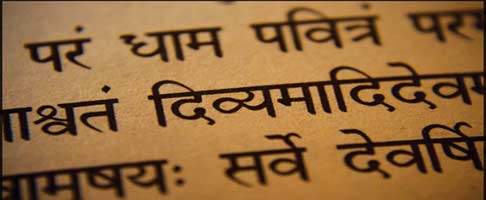 परं धाम पवित्रं परम
ाश्वतं दिव्यमादिदेवम
वामृषयः सर्वे देवर्षि